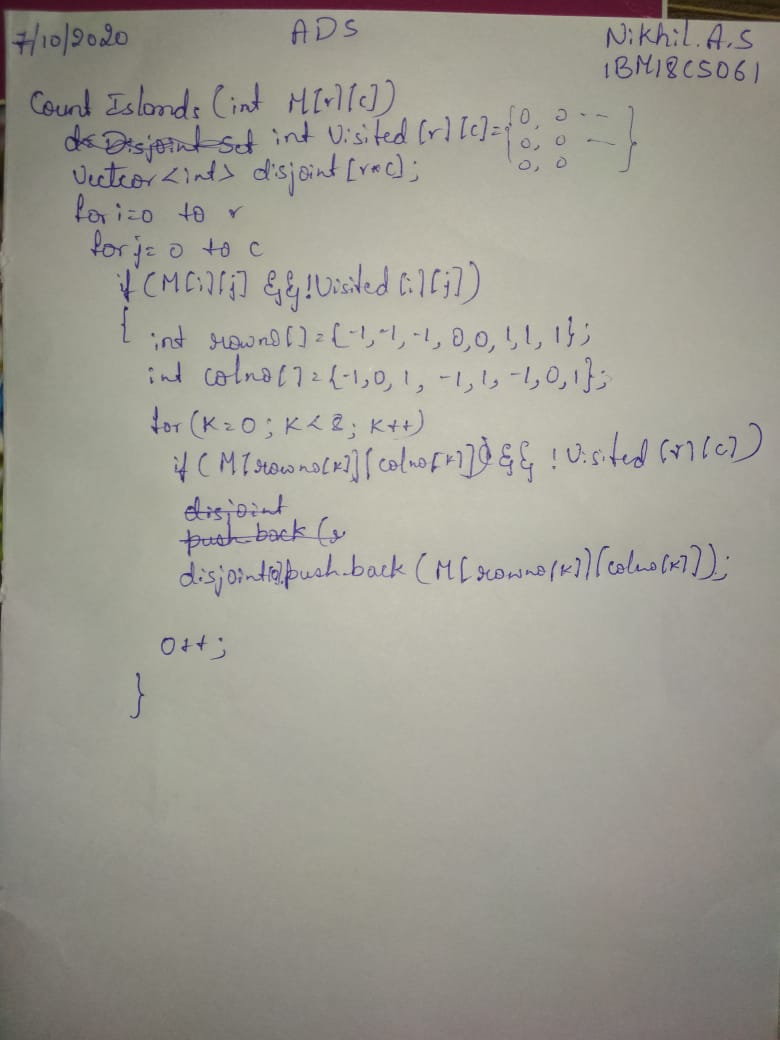 7/10/2020
ADS
Nikhil.A.S
1BM18CS061
Count Islands (int M[r][c])
int Visited [r][c]={0, 0 --
0, 0 —
0, 0 }
Vector<int> disjoint[r*c];
for i=0 to r
for j= 0 to c
if (M[i][j] && !Visited [i][j])
{ int rowno[]={-1,-1,-1, 0,0, 1,1, 1};
int colno[]={-1,0,1, -1,1,-1,0,1};
for (K=0; K<8; K++)
if (M[rowno[k]][colno[k]] && !Visited [r][c])
disjoint
push-back (
disjoint[0].push-back (M[rowno[k]][colno[k]]);
0++;
}